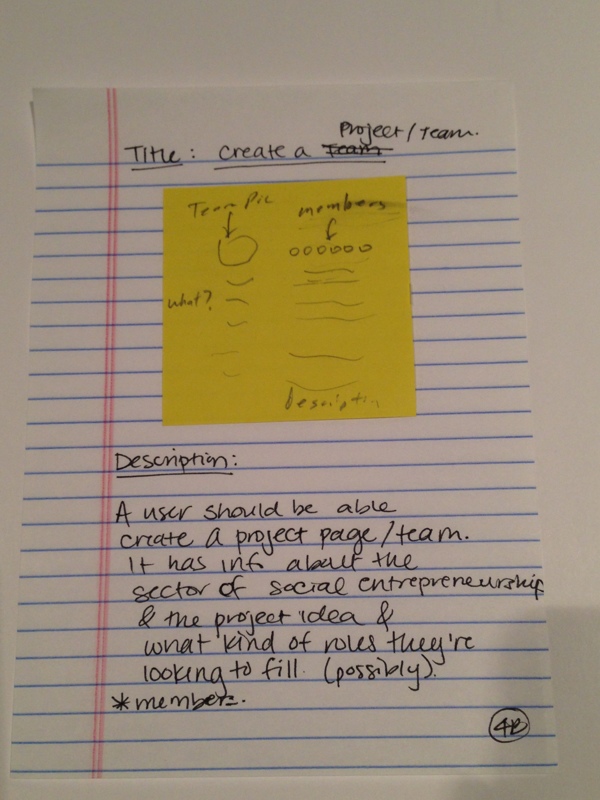 Project/Team.
Title: Create a Team
Team Pic
members
what?
Description
Description:
A user should be able
create a project page/team.
It has info about the
sector of social entrepreneurship
& the project idea &
what kind of roles they're
looking to fill. (possibly).
*members.
4B